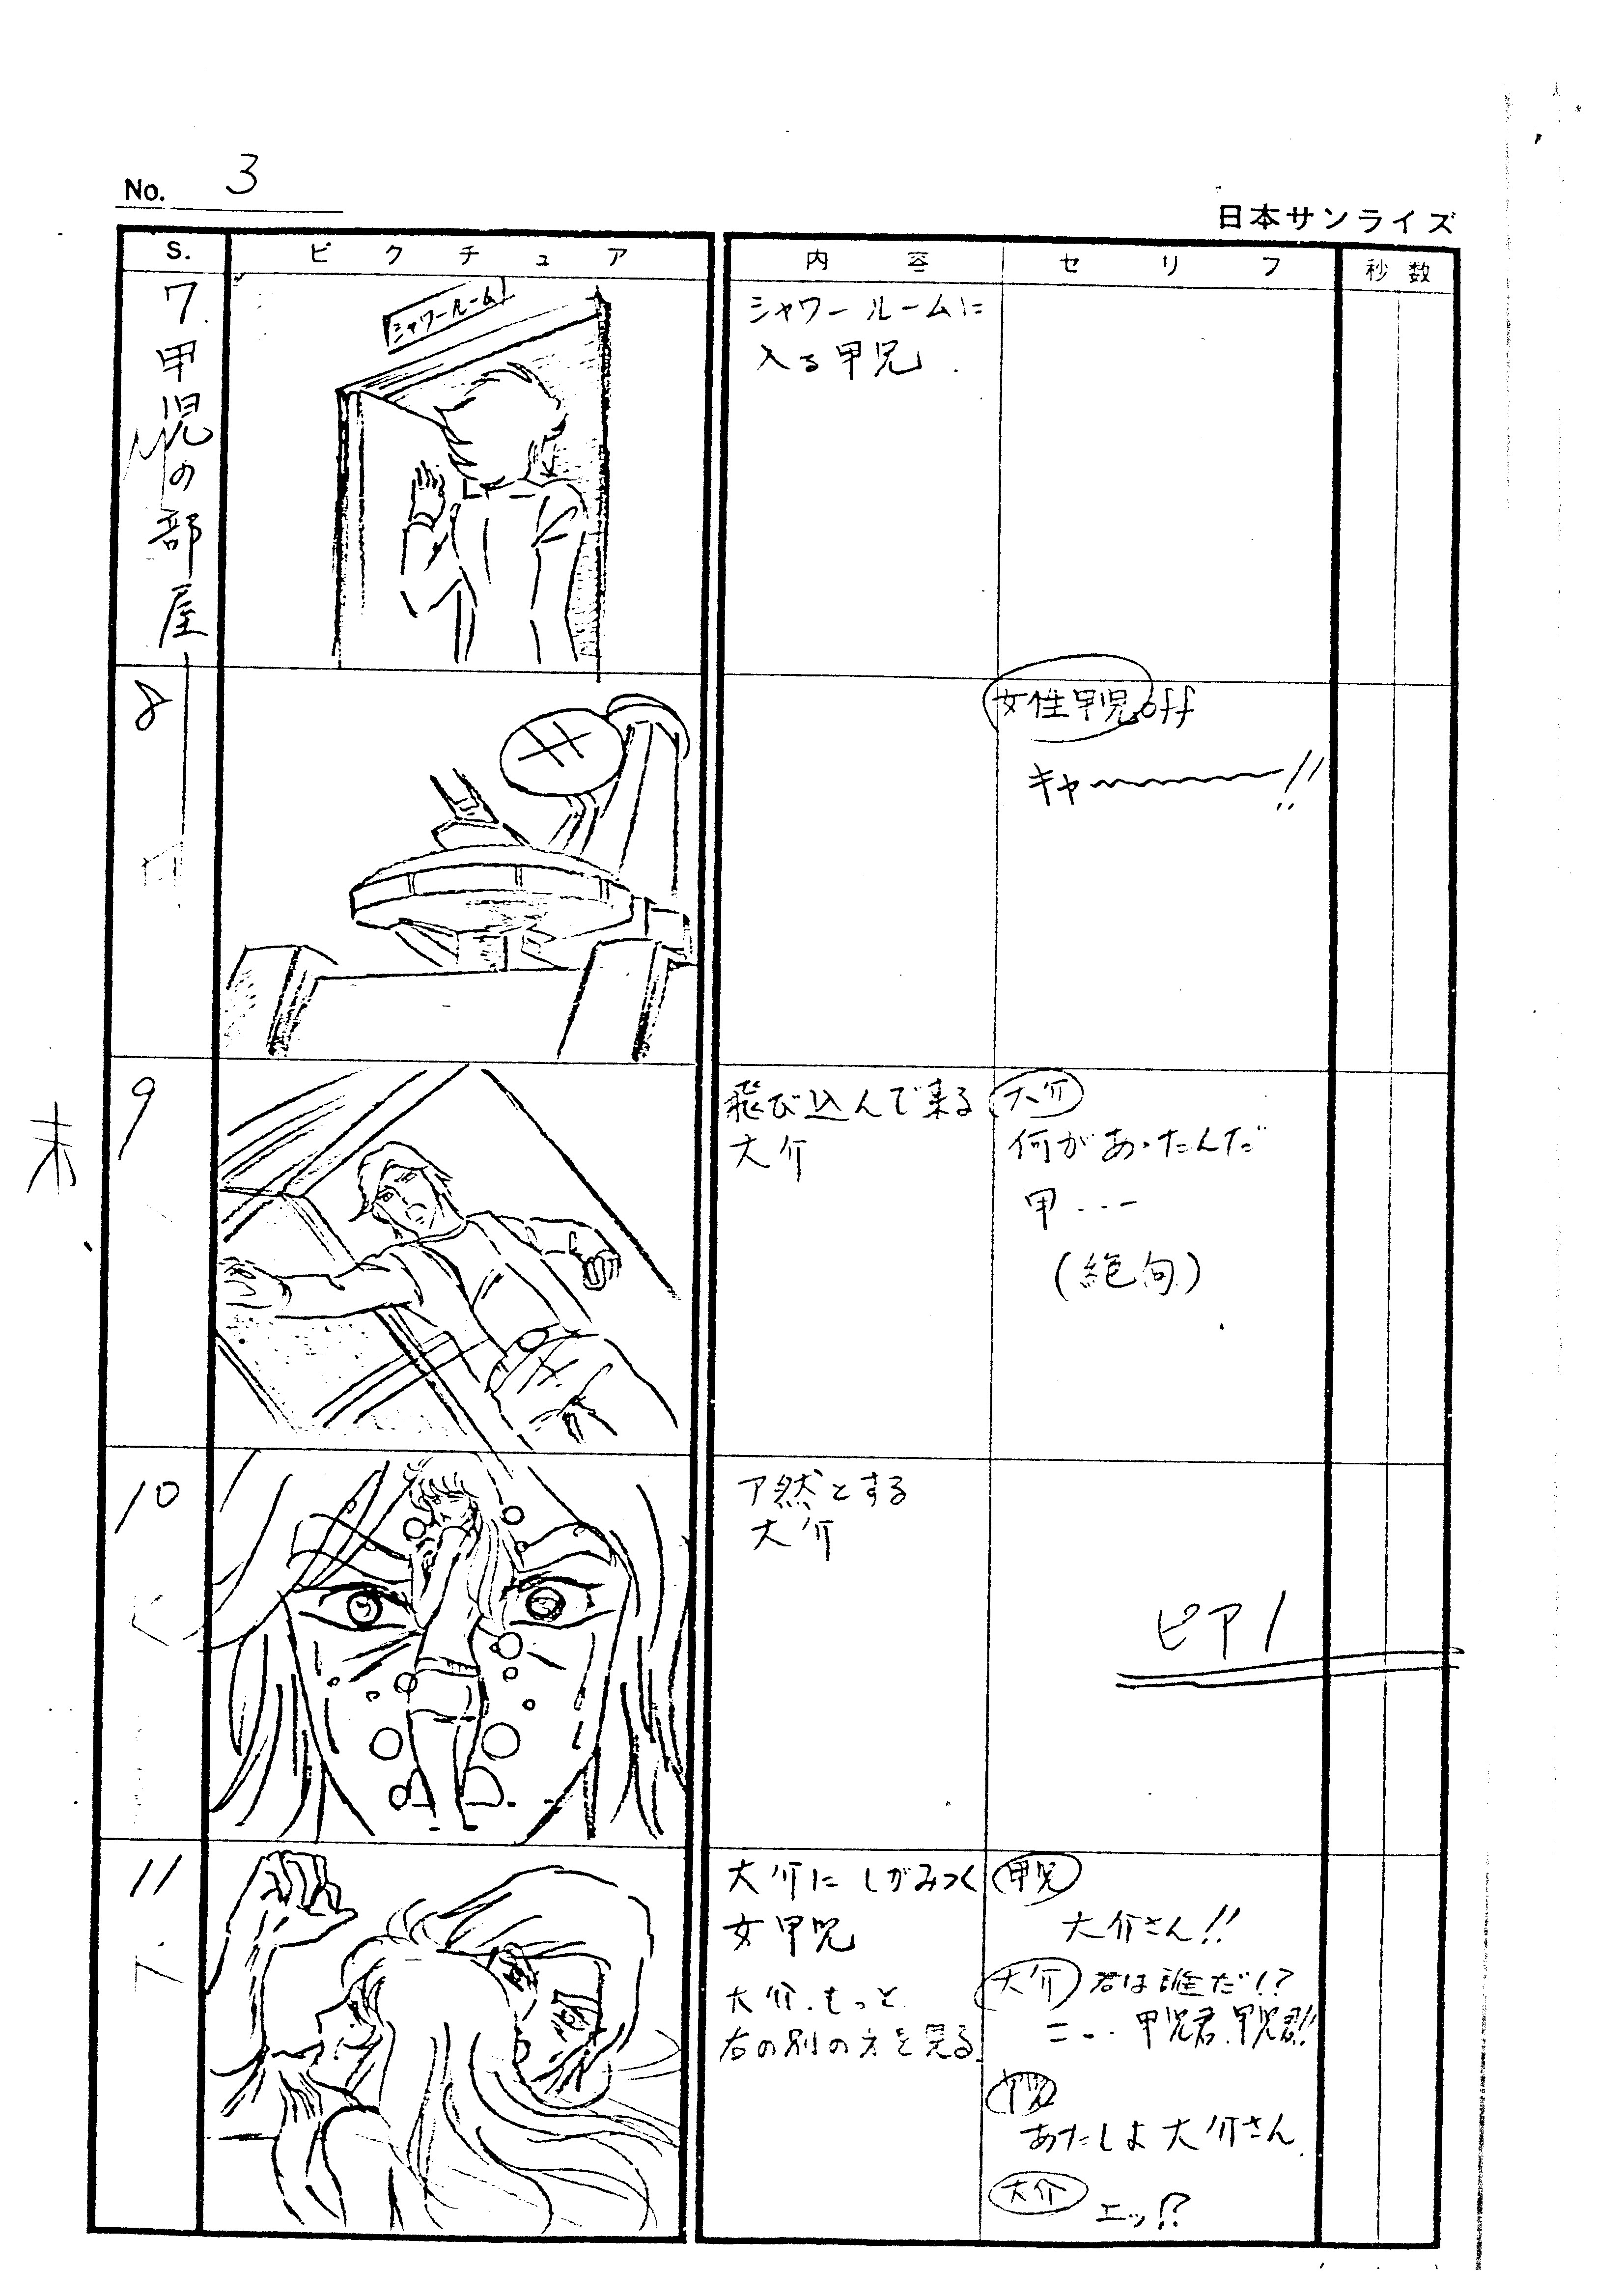 No. 3
日本サンライズ
S.
ピクチュア
内容
セリフ
秒数
7
甲児の部屋
シャワールーム
シャワールームに
入る甲児
8
女性甲児 off
キャ〜〜〜〜!!
9
飛び込んで来る
大介
大介
何があったんだ
甲...ー
(絶句)
末
10
ア然とする
大介
ピアノ
11
大介にしがみつく
女甲児
大介、もっと
右の別の方を見る
甲児
大介さん!!
大介 君は誰だ!?
甲児君、甲児君!!
甲児
あたしよ大介さん
大介
エッ!?